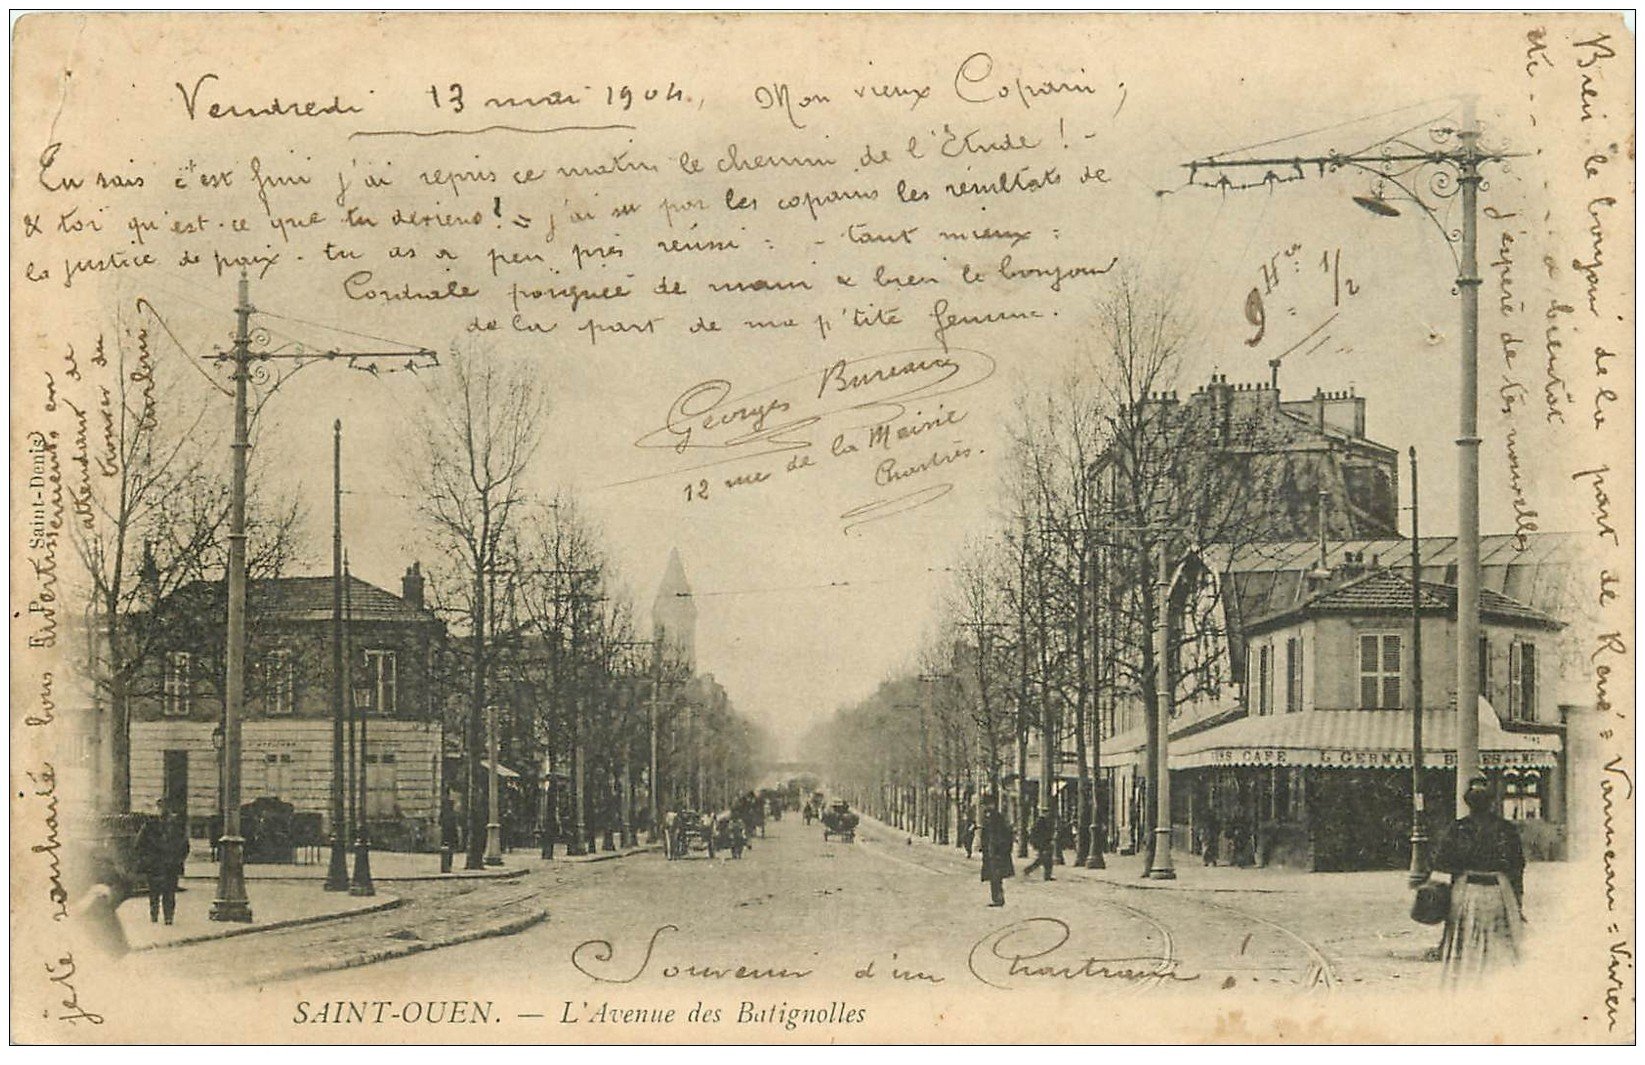 Vendredi 13 mai 1904., Mon vieux Copain,
Tu sais c'est fini j'ai repris ce matin le chemin de l'Etude ! -
& toi qu'est-ce que tu deviens ! = j'ai su par les copains les résultats de
la justice de paix. tu as a peu près réussi : - tant mieux :
Cordiale poignée de main & bien le bonjour
de la part de ma p'tite femme.
9 Hres 1/2
Georges Bureau
12 rue de la Mairie
Chartres.
je te souhaite bons Divertissements en
attendant de
trouver du
turbin
Bien le bonjour de la part de René = Vanneau = Vivien
etc - - - - - - a bientôt
j'espère de tes nouvelles
Souvenir d'un Chartrain !
P. Saint-Denis
CAFÉ L. GERMAI
SAINT-OUEN. — L'Avenue des Batignolles